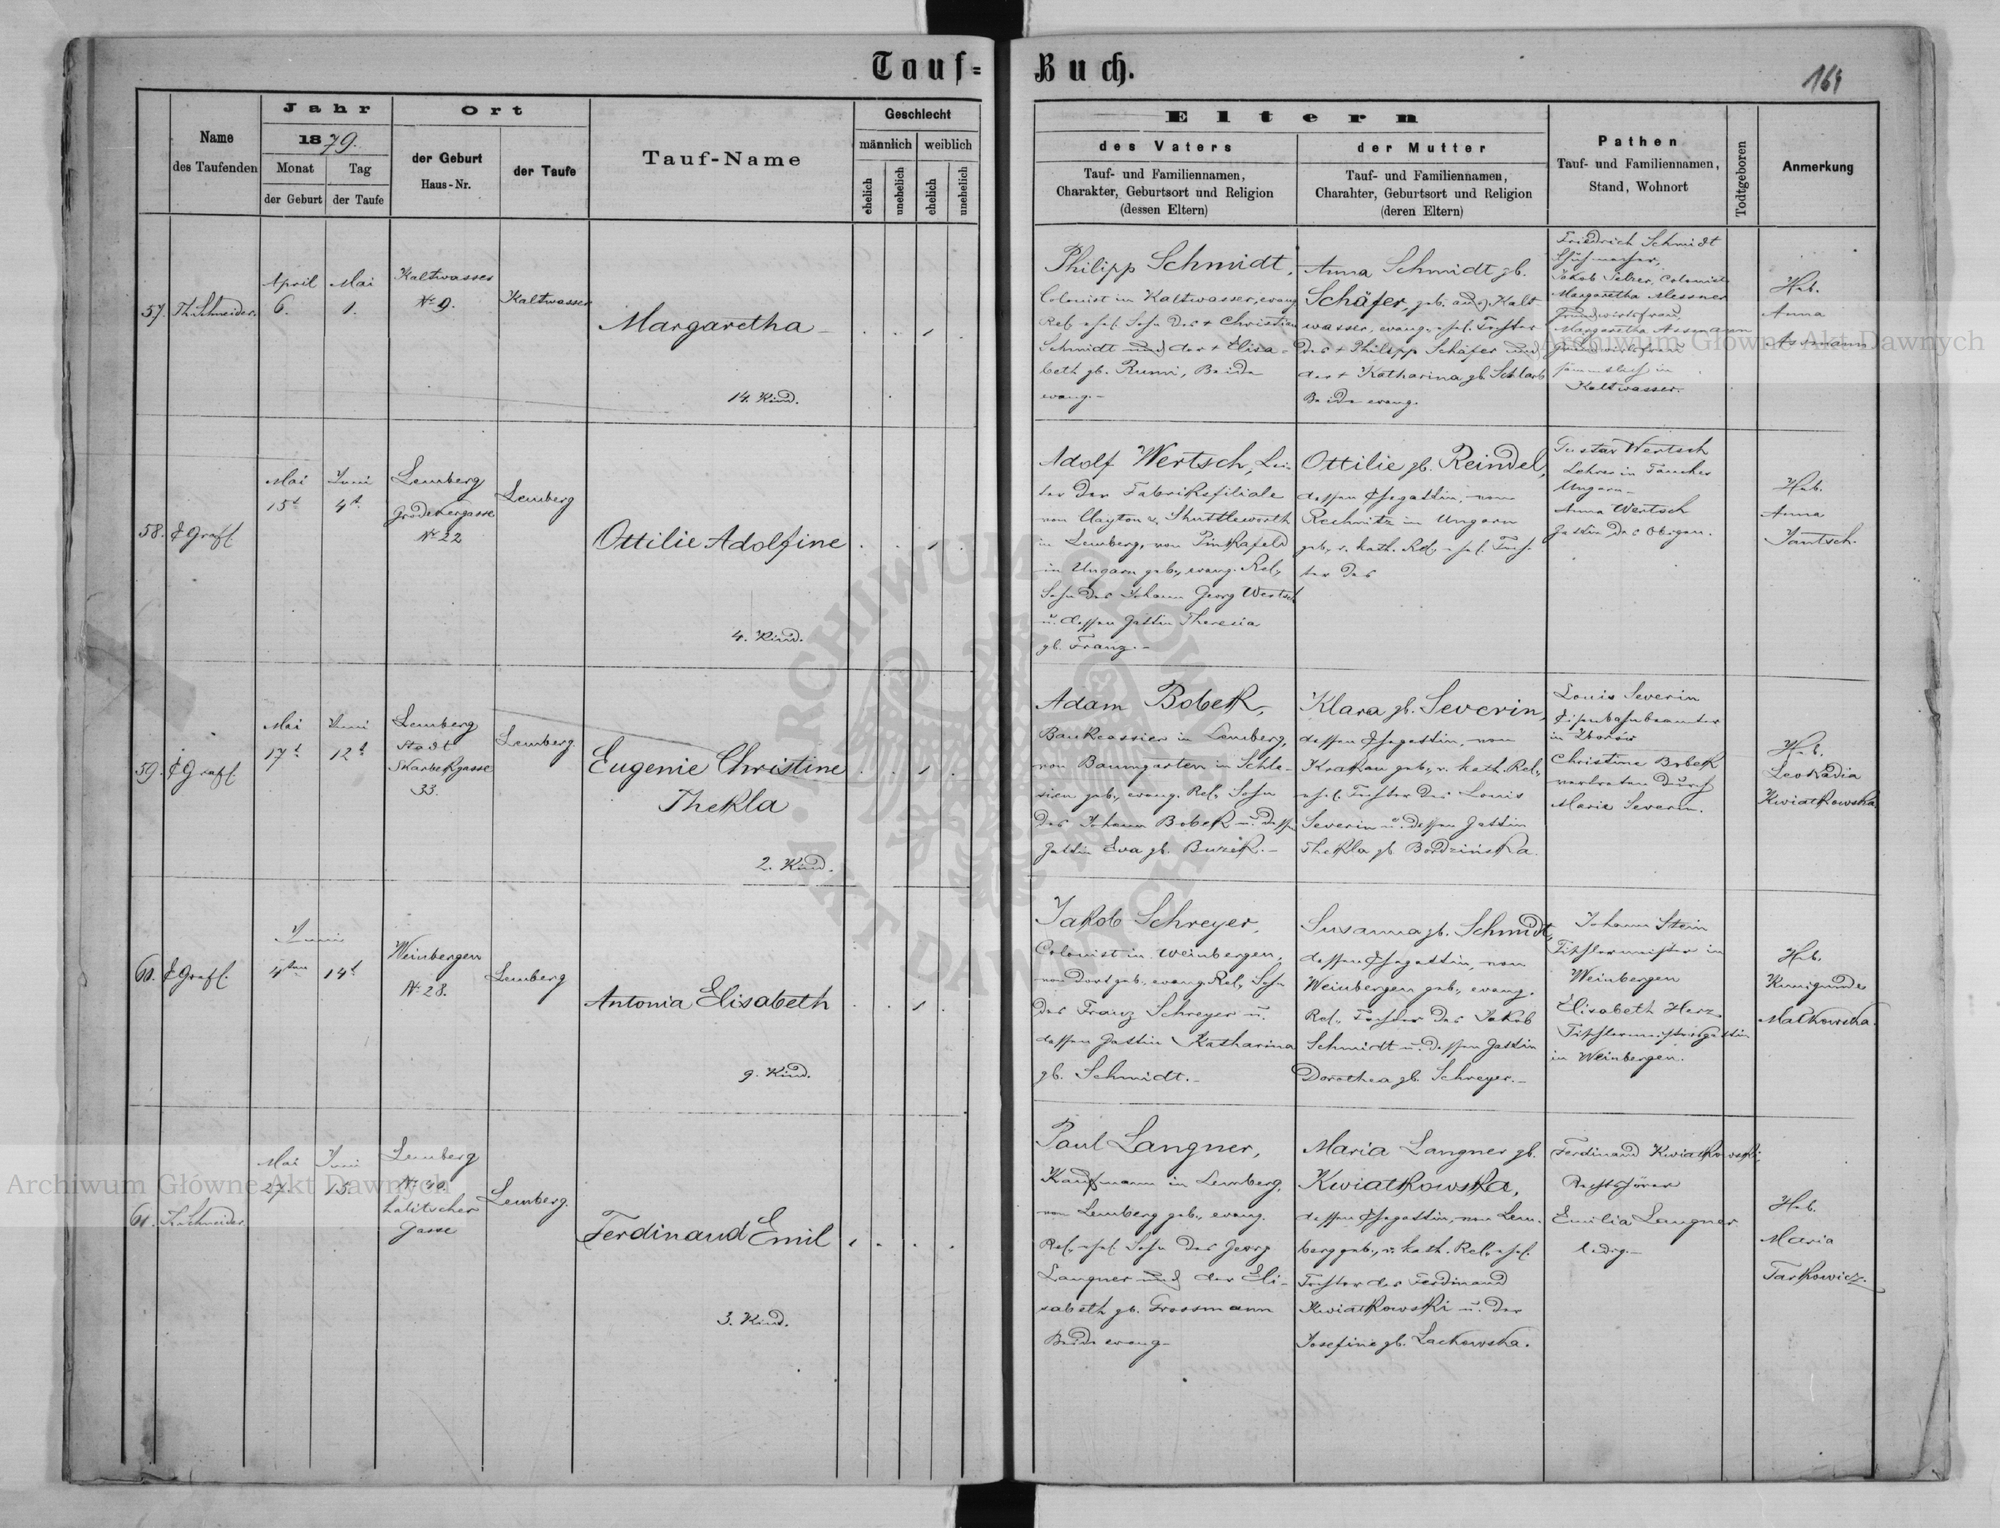 Tauf=
Buch.
164
Name
des Taufenden
Jahr
1879.
Monat
Tag
der Geburt
der Taufe
Ort
der Geburt
Haus-Nr.
der Taufe
Tauf-Name
Geschlecht
männlich
weiblich
ehelich
unehelich
ehelich
unehelich
Eltern
des Vaters
Tauf- und Familiennamen,
Charakter, Geburtsort und Religion
(dessen Eltern)
der Mutter
Tauf- und Familiennamen,
Charahter, Geburtsort und Religion
(deren Eltern)
Pathen
Tauf- und Familiennamen,
Stand, Wohnort
Todtgeboren
Anmerkung
57. Th. Schneider.
April
6.
Mai
1.
Kaltwasser
No 9.
Kaltwasser
Margaretha
14. Kind.
Philipp Schmidt,
Colonist in Kaltwasser, evang.
Rel. ehel. Sohn des + Christian
Schmidt und der + Elisa-
beth gb. Rumi, Beide
evang.-
Anna Schmidt gb.
Schäfer, geb. aus Kalt-
wasser, evang., ehel. Tochter
des + Philipp Schäfer und
der + Katharina gb. Schlarb
Beide evang.
Friedrich Schmidt
Schuhmacher,
Jakob Selzer, Colonist
Margaretha Messner
Grundwirtsfrau,
Margaretha Assmann
Grundwirtsfrau
sämmtlich in
Kaltwasser.
Heb.
Anna
Assmann
58. E Grafl
Mai
15t
Juni
4t.
Lemberg
Grodekergasse
No 22
Lemberg
Ottilie Adolfine
4. Kind.
Adolf Wertsch, Lei-
ter der Fabriksfiliale
von Clayton & Shuttleworth
in Lemberg, von Pinkafeld
in Ungarn geb., evang. Rel.,
Sohn des Johann Georg Wertsch
u. dessen Gattin Theresia
gb. Franz.-
Ottilie gb. Reindel,
dessen Ehegattin, von
Rechnitz in Ungarn
geb., r. kath. Rel., ehel. Toch-
ter des
Gustav Wertsch
Lehrer in
Ungarn-
Anna Wertsch
Gattin des Obigen.
Heb.
Anna
Jantsch.
59. E Grafl
Mai
17t
Juni
12t
Lemberg
Stadt
Skarbekgasse
33.
Lemberg.
Eugenie Christine
Thekla
2. Kind.
Adam Bobek,
Bankcassier in Lemberg,
von Baumgarten in Schle-
sien geb., evang. Rel., Sohn
des Johann Bobek u. dessen
Gattin Eva gb. Buzek.-
Klara gb. Severin,
dessen Ehegattin, von
Krakau geb., r. kath. Rel.,
ehel. Tochter des Louis
Severin u. dessen Gattin
Thekla gb. Bordzińska.
Louis Severin
Eisenbahnbeamter
in
Christine Bobek
vertreten durch
Marie Severin.
Heb.
Leokadia
Kwiatkowska
60. E Grafl.
Juni
4ten
14t
Weinbergen
No 28.
Lemberg
Antonia Elisabeth
9. Kind.
Jakob Schreyer,
Colonist in Weinbergen,
von dort geb., evang. Rel., Sohn
des Franz Schreyer u.
dessen Gattin Katharina
gb. Schmidt.-
Susanna gb. Schmidt,
dessen Ehegattin, von
Weinbergen geb., evang.
Rel., Tochter des Jakob
Schmidt u. dessen Gattin
Dorothea gb. Schreyer.-
Johann Stein
Tischlermeister in
Weinbergen
Elisabeth Herz
Tischlermeistersgattin
in Weinbergen.
Heb.
Kunigunde
Malkowska.
61. Th. Schneider
Mai
27.
Juni
15.
Lemberg
No 40
halitscher
Gasse
Lemberg.
Ferdinand Emil
3. Kind.
Paul Langner,
Kaufmann in Lemberg,
von Lemberg geb., evang.
Rel., ehel. Sohn des Georg
Langner und der Eli-
sabeth gb. Grossmann
Beide evang-
Maria Langner gb.
Kwiatkowska,
dessen Ehegattin, von Lem-
berg geb., r. kath. Rel., ehel.
Tochter des Ferdinand
Kwiatkowski u. der
Josefine gb. Lackowska.
Ferdinand Kwiatkowski,
Rechtshörer
Emilia Langner
ledig.-
Heb.
Maria
Tarkowicz.
Archiwum Główne Akt Dawnych
Archiwum Główne Akt Dawnych
ARCHIWUM GŁÓWNE AKT DAWNYCH